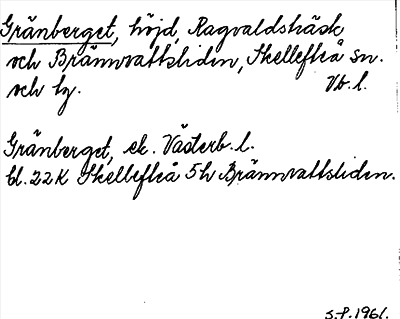 Gränberget, höjd, Ragvaldsträsk
och Brännvattsliden, Skellefteå sn.
och tg. Vb. l.
Gränberget, ek. Västerb. l.
bl. 22K Skellefteå 5h Brännvattsliden.
S.P. 1961.